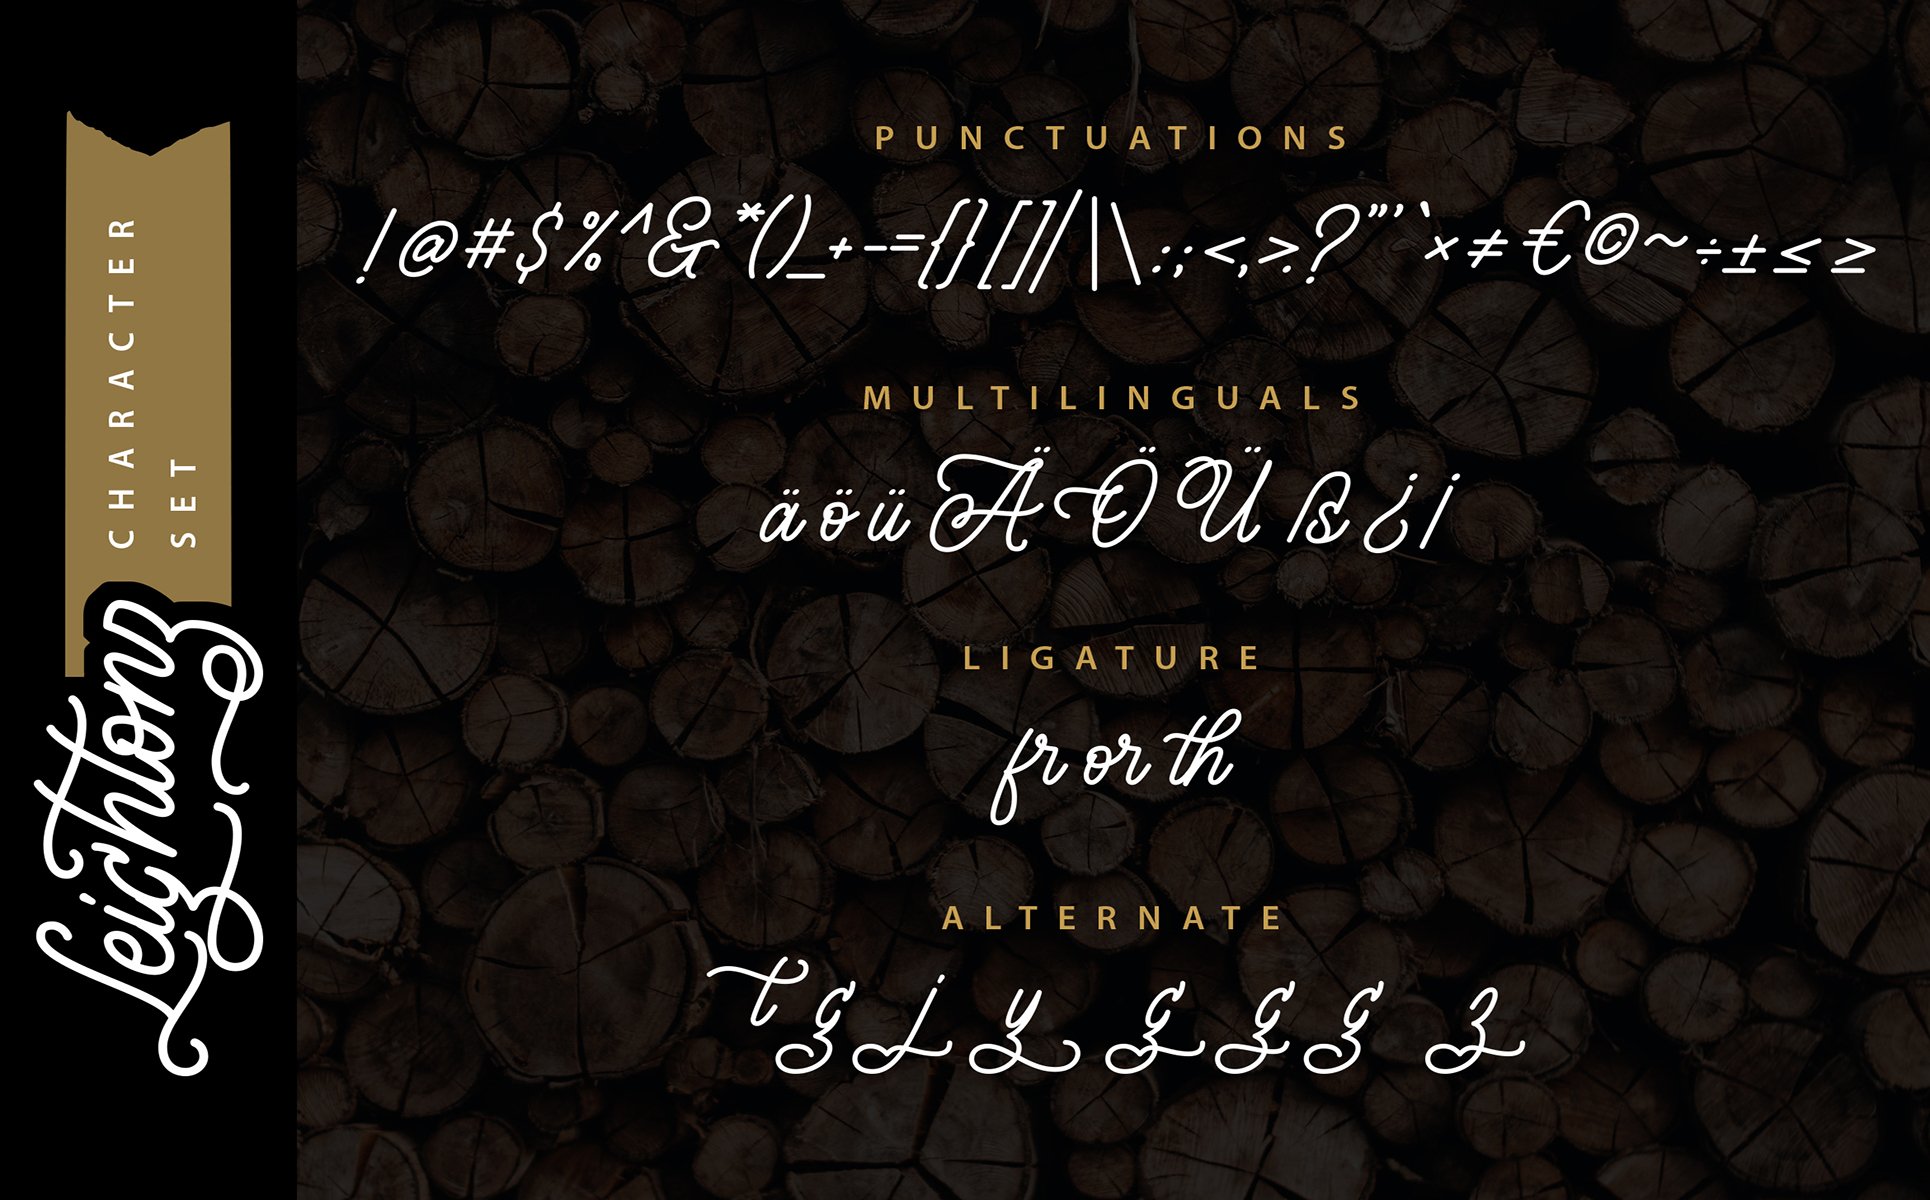 CHARACTER
SET
Leighton
PUNCTUATIONS
!@#$%^&*()_+-={}[]/|\:;<,>.?"'`×≠€©~÷±≤≥
MULTILINGUALS
äöüÄÖÜß¿¡
LIGATURE
fr or th
ALTERNATE
t g j y g g g z